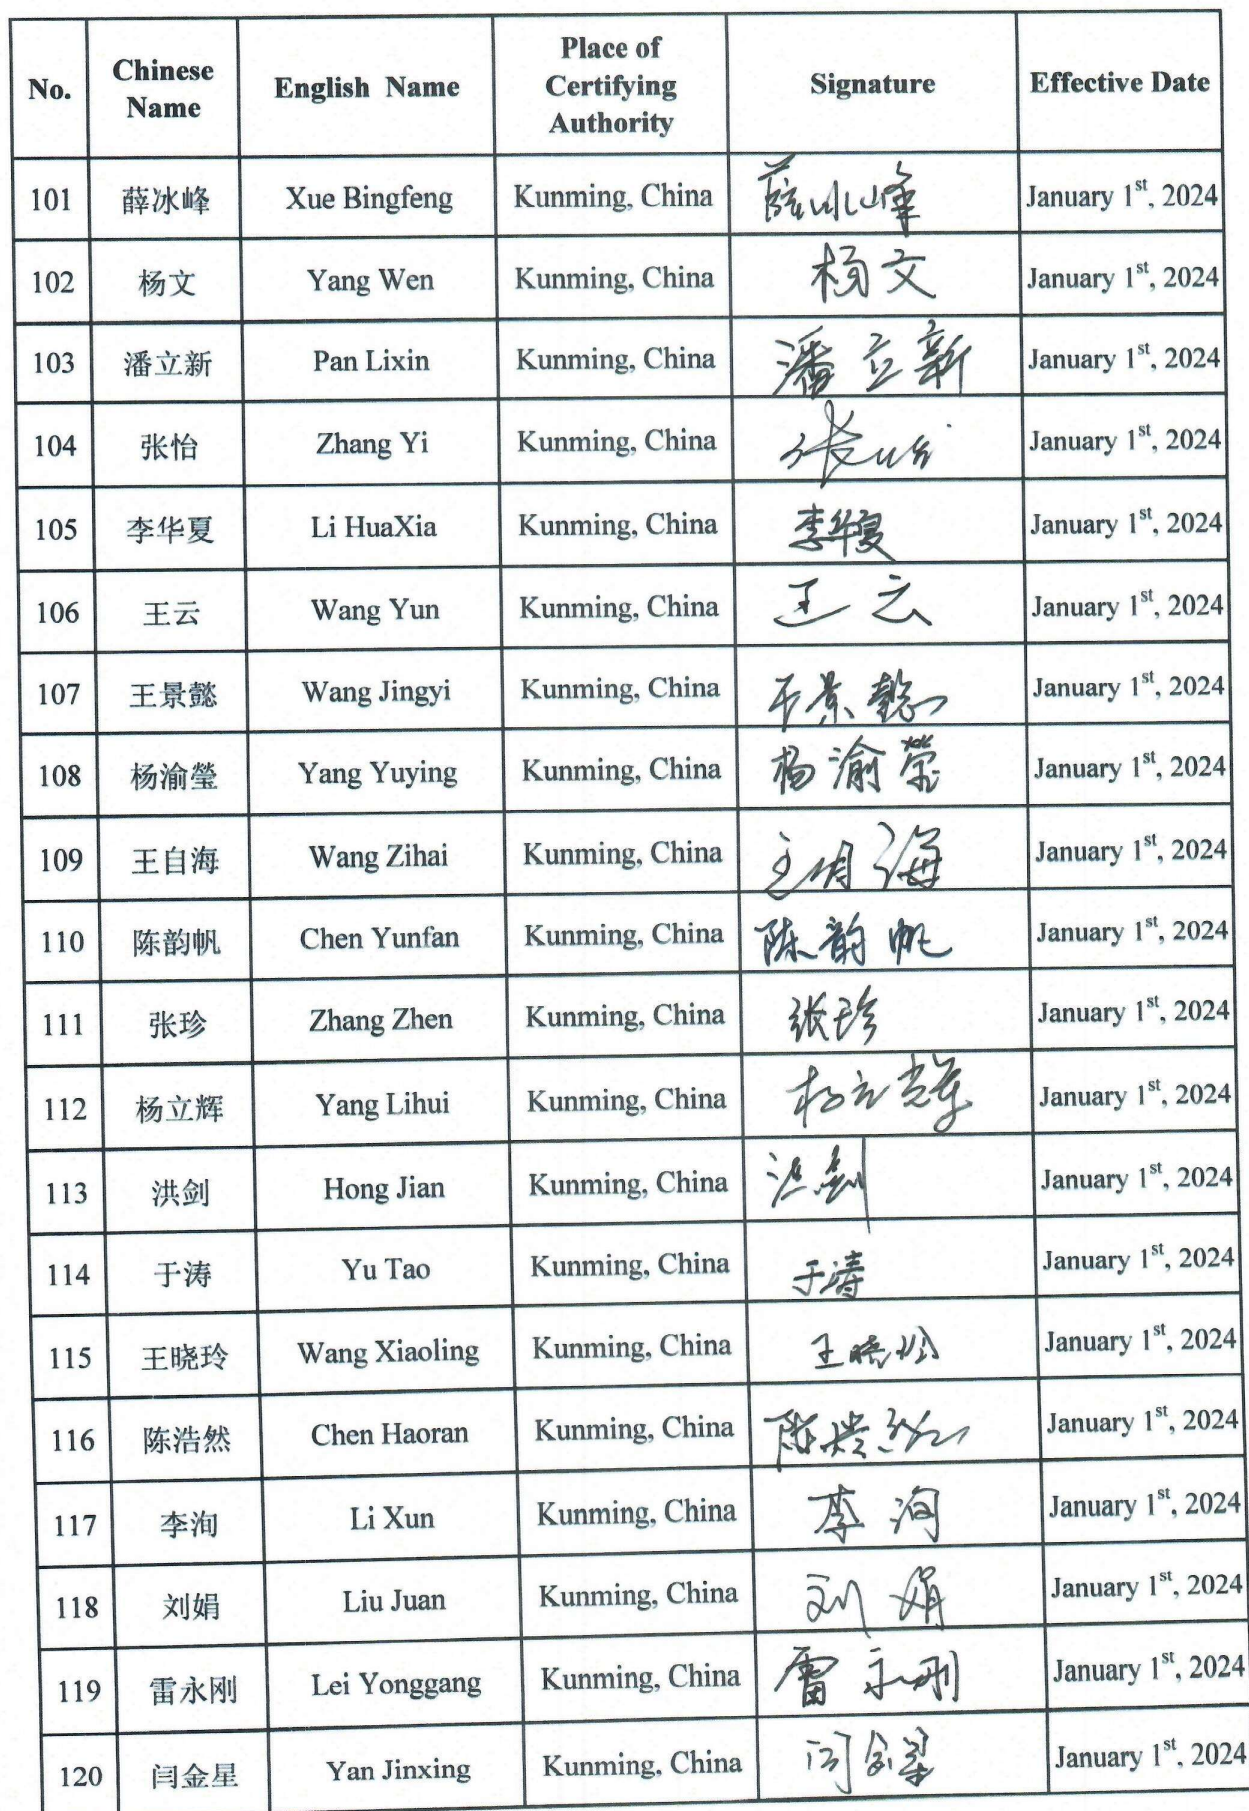 No. Chinese Name English Name Place of Certifying Authority Signature Effective Date
101 薛冰峰 Xue Bingfeng Kunming, China 薛冰峰 January 1st, 2024
102 杨文 Yang Wen Kunming, China 杨文 January 1st, 2024
103 潘立新 Pan Lixin Kunming, China 潘立新 January 1st, 2024
104 张怡 Zhang Yi Kunming, China 张怡 January 1st, 2024
105 李华夏 Li HuaXia Kunming, China 李华夏 January 1st, 2024
106 王云 Wang Yun Kunming, China 王云 January 1st, 2024
107 王景懿 Wang Jingyi Kunming, China 王景懿 January 1st, 2024
108 杨渝瑩 Yang Yuying Kunming, China 杨渝瑩 January 1st, 2024
109 王自海 Wang Zihai Kunming, China 王自海 January 1st, 2024
110 陈韵帆 Chen Yunfan Kunming, China 陈韵帆 January 1st, 2024
111 张珍 Zhang Zhen Kunming, China 张珍 January 1st, 2024
112 杨立辉 Yang Lihui Kunming, China 杨立辉 January 1st, 2024
113 洪剑 Hong Jian Kunming, China 洪剑 January 1st, 2024
114 于涛 Yu Tao Kunming, China 于涛 January 1st, 2024
115 王晓玲 Wang Xiaoling Kunming, China 王晓玲 January 1st, 2024
116 陈浩然 Chen Haoran Kunming, China 陈浩然 January 1st, 2024
117 李洵 Li Xun Kunming, China 李洵 January 1st, 2024
118 刘娟 Liu Juan Kunming, China 刘娟 January 1st, 2024
119 雷永刚 Lei Yonggang Kunming, China 雷永刚 January 1st, 2024
120 闫金星 Yan Jinxing Kunming, China 闫金星 January 1st, 2024